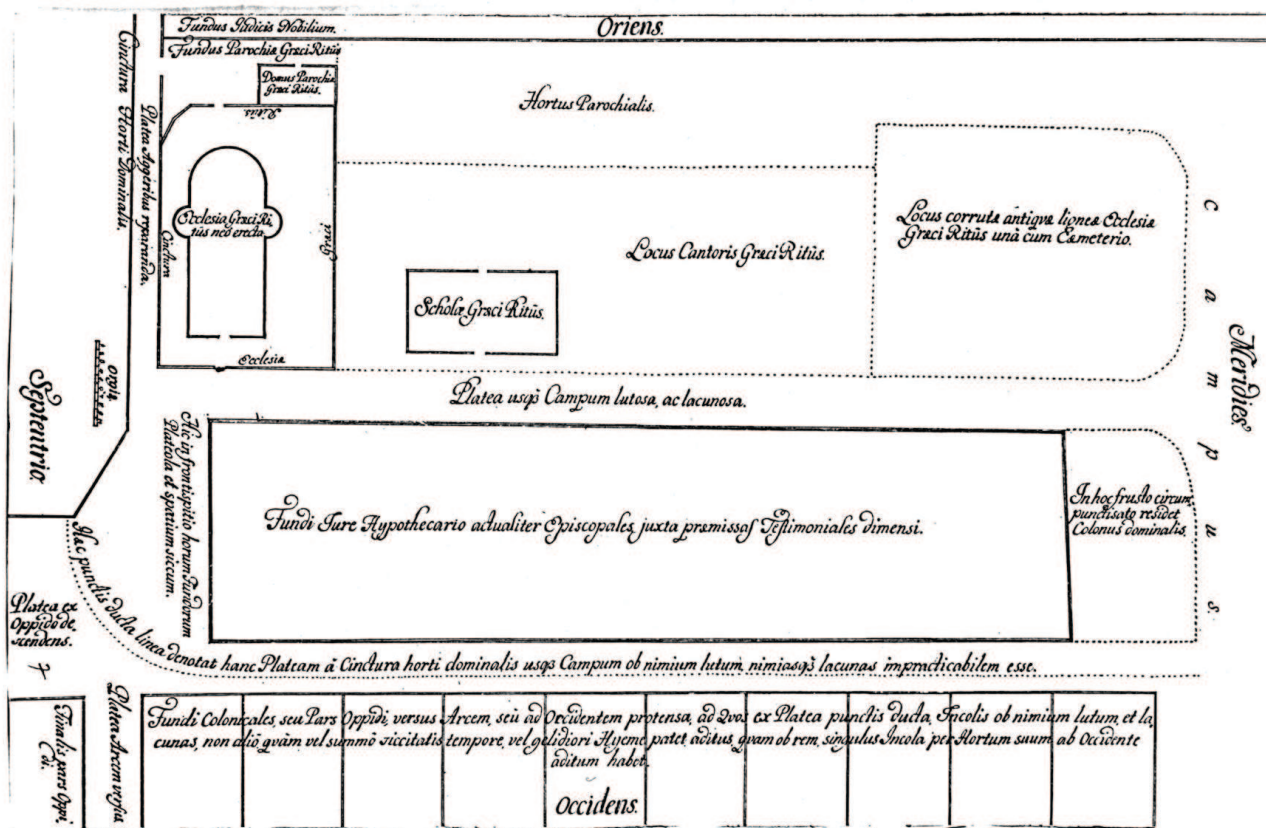 Oriens.
Fundus Iudicis Nobilium.
Fundus Parochiæ Græci Ritûs
Domus Parochiæ
Græci Ritûs.
Hortus Parochialis.
Cinctura Horti Dominalis.
Platea Aggeribus reparanda.
Cinctura
Ritûs
Græci
Ecclesiæ
Ecclesia Græci Ri,
tûs neo erecta.
Schola Græci Ritûs.
Locus Cantoris Græci Ritûs.
Locus corrutæ antiquæ ligneæ Ecclesiæ
Græci Ritûs unà cum Cæmeterio.
Campus.
Meridies.
Septentrio.
Platea usq3 Campum lutosa, ac lacunosa.
Hic in frontispitio horum Fundorum
Plateola et spatium siccum.
Fundi Jure Hypothecario actualiter Episcopales, juxta præmissas Testimoniales dimensi.
In hoc frusto circum,
punctisato residet
Colonus dominalis.
Hæc punctis ducta linea denotat hanc Plateam à Cinctura horti dominalis usq3 Campum ob nimium lutum, nimiasq3 lacunas impracticabilem esse.
Platea ex
Oppido de,
scendens.
Platea Arcem versus
Finalis pars Oppi,
di.
Fundi Colonicales, seu Pars Oppidi, versus Arcem, seù ad Occidentem protensa, ad Quos ex Platea punctis ducta, Incolis ob nimium lutum, et la,
cunas, non aliò quàm vel summò siccitatis tempore, vel gelidiori Hyeme patet aditus, quam ob rem, singulus Incola per Hortum suum ab Occidente
aditum habet.
Occidens.